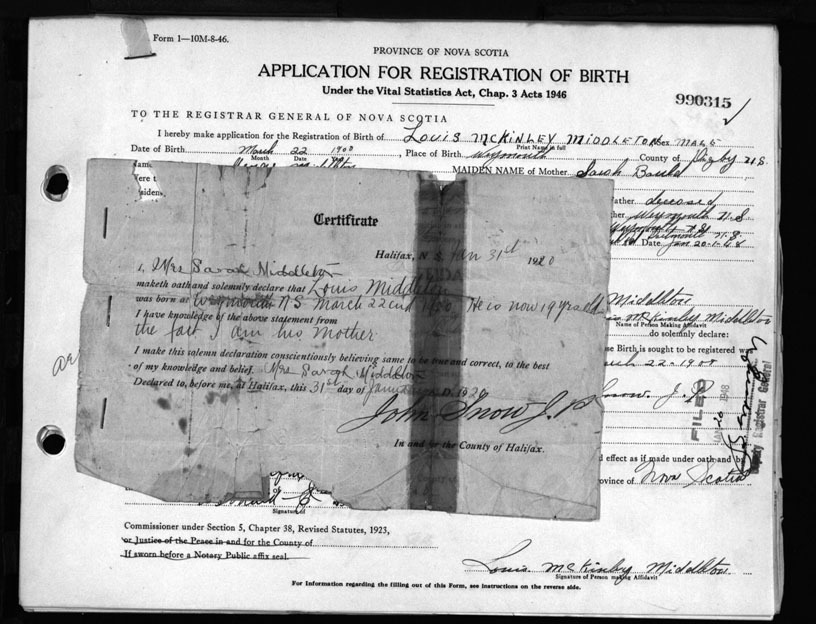 Form 1—10M-8-46.
PROVINCE OF NOVA SCOTIA
APPLICATION FOR REGISTRATION OF BIRTH
Under the Vital Statistics Act, Chap. 3 Acts 1946
990315
TO THE REGISTRAR GENERAL OF NOVA SCOTIA
I hereby make application for the Registration of Birth of Louis McKinley Middleton Sex Male
Print Name in full
Date of Birth March 22 1900, Place of Birth Weymouth County of Digby N.S.
Month Date
MAIDEN NAME of Mother Sarah
Father deceased
Weymouth N.S.
Date Jan 20-1948
Certificate
Halifax, N.S. Jan 31st 1920
I, Mrs Sarah Middleton
maketh oath and solemnly declare that Louis Middleton
was born at Weymouth N.S March 22nd He is now 19 yrs old
I have knowledge of the above statement from
the fact I am his Mother
I make this solemn declaration conscientiously believing same to be true and correct, to the best
of my knowledge and belief. Mrs Sarah Middleton
Declared to, before me, at Halifax, this 31st day of January A.D. 1920
John Snow J.P.
In and for the County of Halifax.
Middleton
McKinley Middleton
Name of Person Making Affidavit
do solemnly declare:
Birth is sought to be registered was
22-1900
Snow. J.P.
FILED
1948
Deputy Registrar General
effect as if made under oath and by
Province of Nova Scotia
Signature of
Commissioner under Section 5, Chapter 38, Revised Statutes, 1923,
or Justice of the Peace in and for the County of
If sworn before a Notary Public affix seal.
Louis McKinley Middleton
Signature of Person making Affidavit
For Information regarding the filling out of this Form, see instructions on the reverse side.